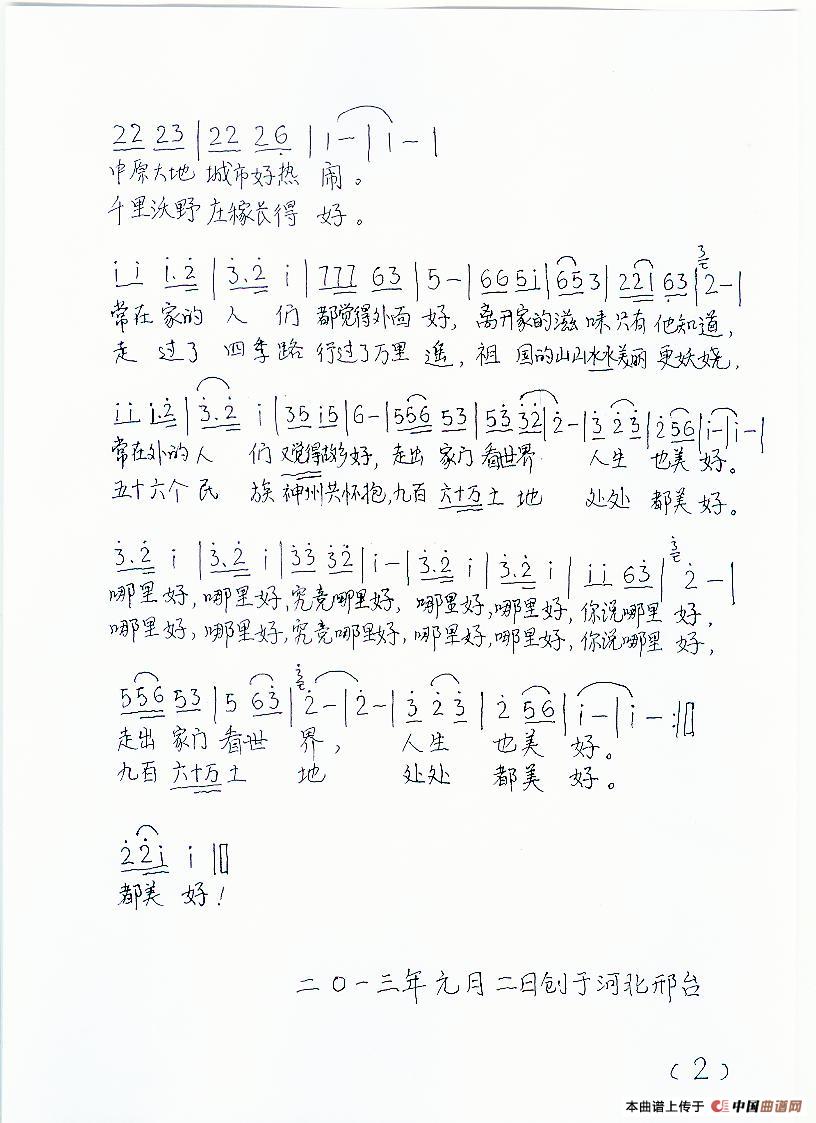 22 23 | 22 26 | i — | i — |
中原大地 城市好热 闹。
千里沃野 庄稼长得 好。
i i i.2 | 3.2 i | 777 63 | 5 — | 665i | 653 | 22i 63 | 3 2 — |
常在家的 人 们 都觉得外面 好, 离开家的滋 味只有 他知道,
走 过了 四季路 行过了万里 遥, 祖 国的山山水水美丽 更妖娆,
i i i.2 | 3.2 i | 35 i5 | 6 — | 556 53 | 53 32 | 2 — | 3 2 3 | 2 56 | i — | i — |
常在外的 人 们 又觉得故乡好, 走出 家门 看世界 人生 也美 好。
五十六个 民 族 神州共怀抱, 九百 六十万土 地 处处 都美 好。
3.2 i | 3.2 i | 33 32 | i — | 3.2 i | 3.2 i | i i 63 | 3 2 — |
哪里好, 哪里好, 究竟哪里好, 哪里好, 哪里好, 你说哪里 好,
哪里好, 哪里好, 究竟哪里好, 哪里好, 哪里好, 你说哪里 好,
556 53 | 5 63 | 3 2 — | 2 — | 3 2 3 | 2 56 | i — | i — :||
走出 家门 看世 界, 人生 也美 好。
九百 六十万土 地 处处 都美 好。
22i i ||
都美 好!
二0一三年元月二日创于河北邢台
(2)
本曲谱上传于 中国曲谱网